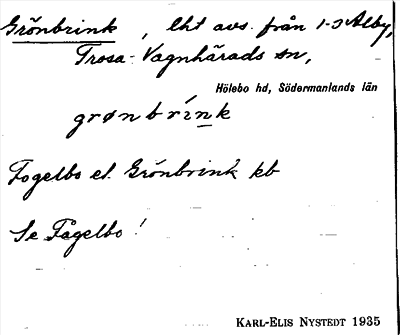 Grönbrink, lht avs. från 1-3 Alby,
Trosa-Vagnhärads sn,
Hölebo hd, Södermanlands län
grønbrínk
Fogelbo el. Grönbrink kb
Se Fågelbo!
KARL-ELIS NYSTEDT 1935